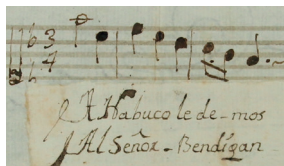 3
4
A Habuco le de-mos
Al Señor - Bendigan